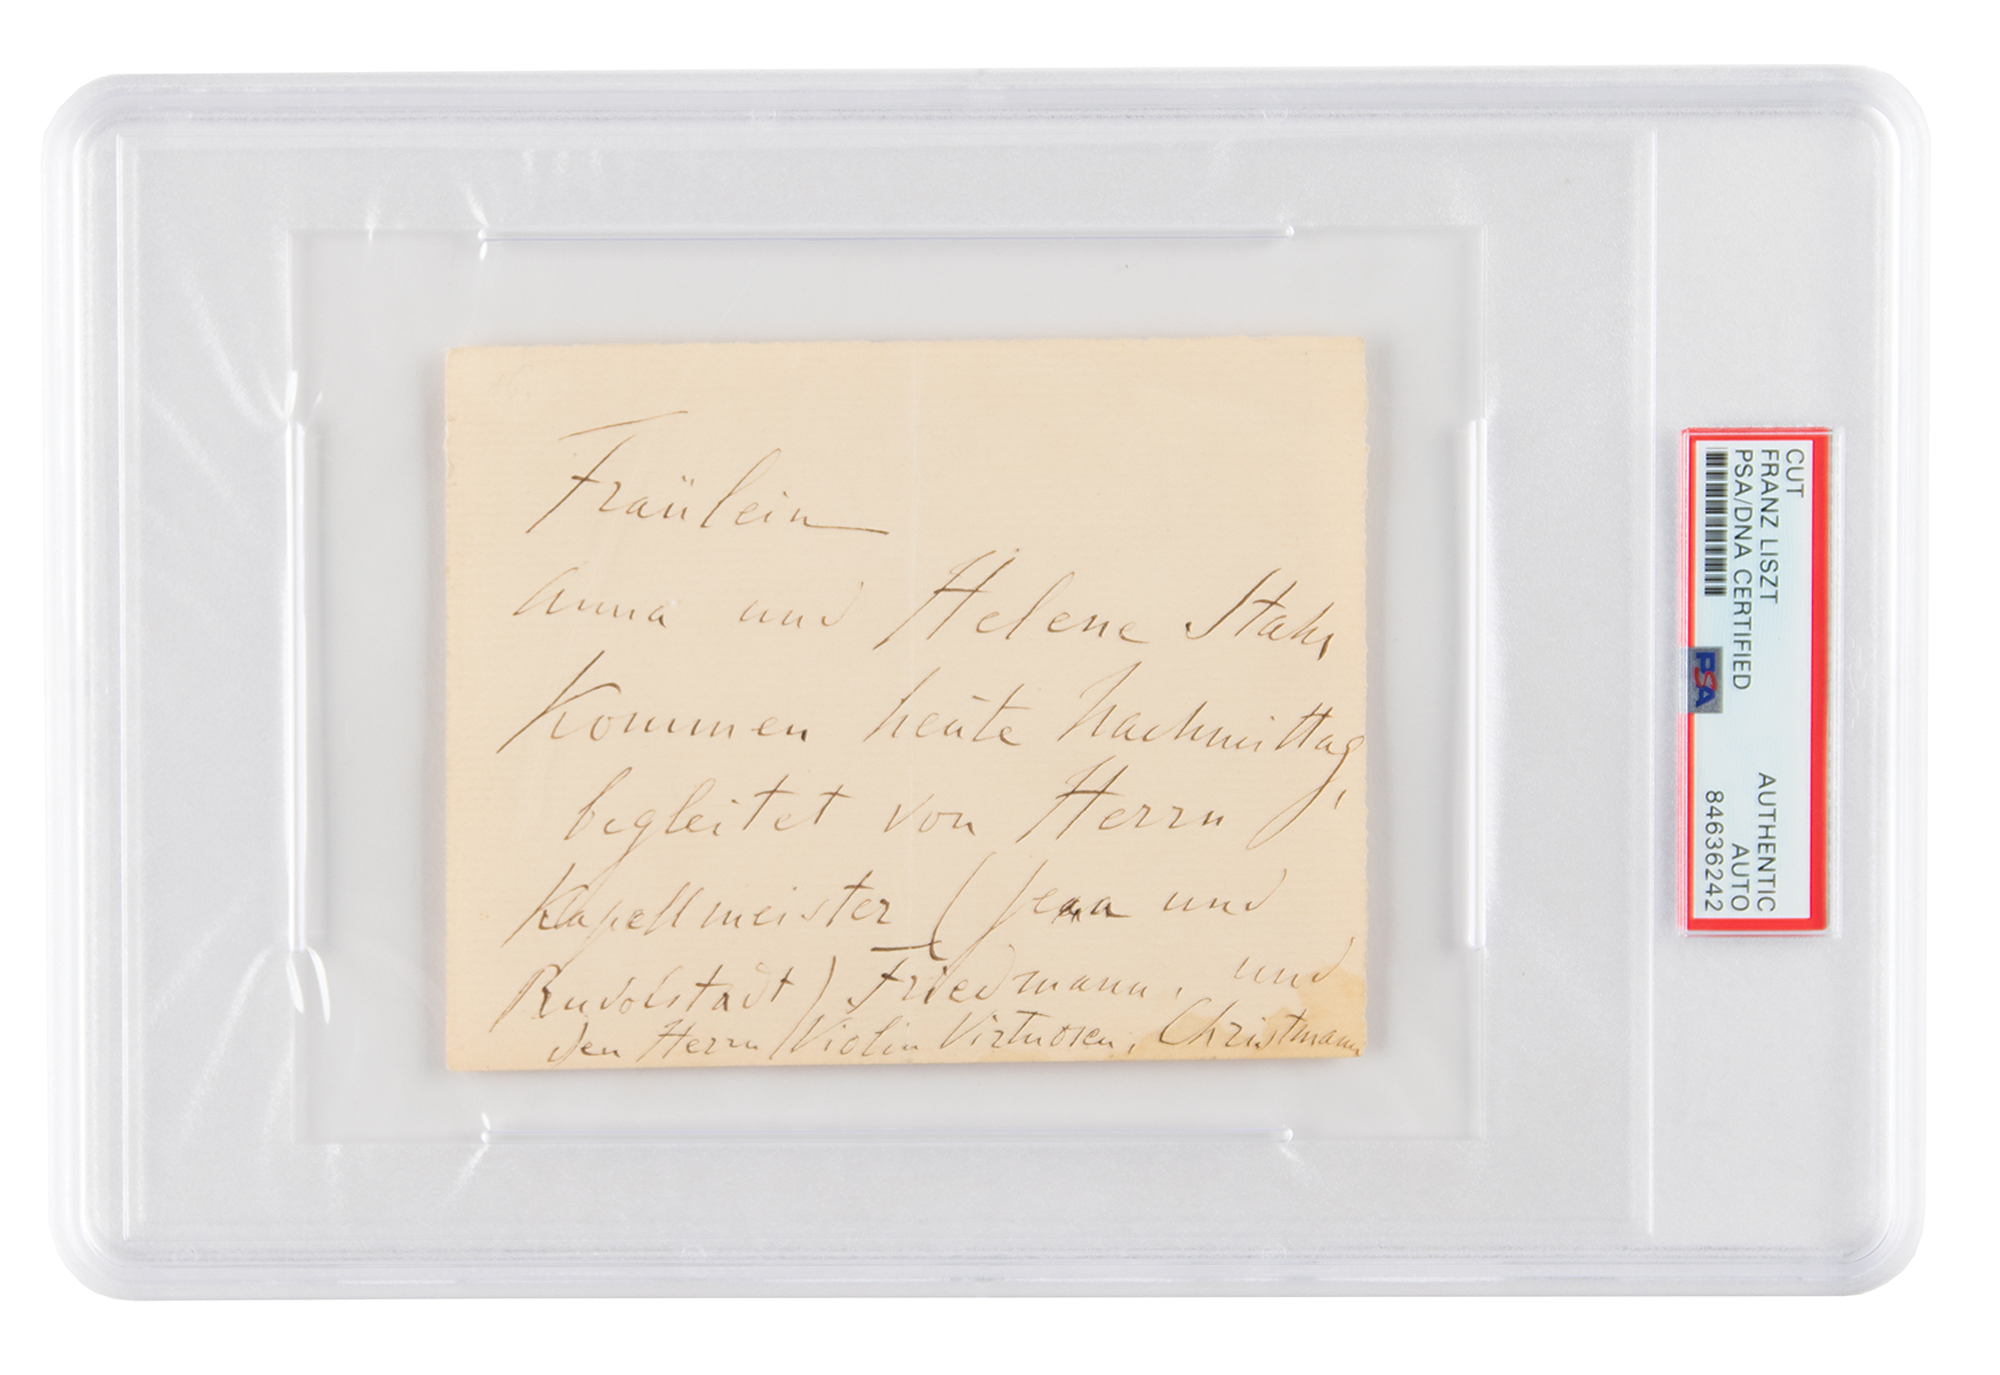 Fräulein
Anna und Helene Stahr
Kommen heute Nachmittag,
begleitet von Herrn
Kapellmeister (Jena und
Rudolstadt) Friedmann, und
den Herrn Violin Virtuosen, Christmann
CUT
FRANZ LISZT
PSA/DNA CERTIFIED
AUTHENTIC
AUTO
84636242
PSA